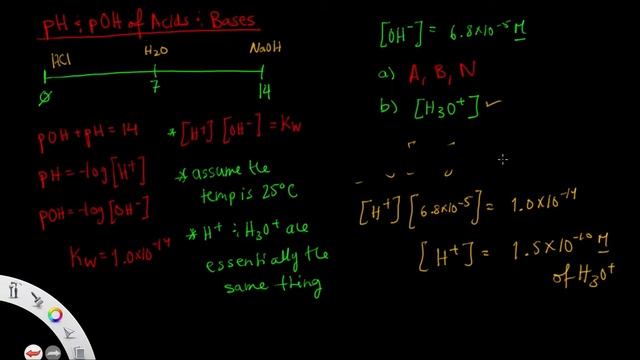 pH & pOH of Acids & Bases
HCl H₂O NaOH
0 7 14
pOH + pH = 14
pH = -log[H⁺]
pOH = -log[OH⁻]
Kw = 1.0x10⁻¹⁴
* [H⁺] [OH⁻] = Kw
* assume the
temp is 25°C
* H⁺ & H₃O⁺ are
essentially the
same thing
[OH⁻] = 6.8x10⁻⁵ M
a) A, B, N
b) [H₃O⁺] ✓
[H⁺] [6.8x10⁻⁵] = 1.0x10⁻¹⁴
[H⁺] = 1.5x10⁻¹⁰ M
of H₃O⁺